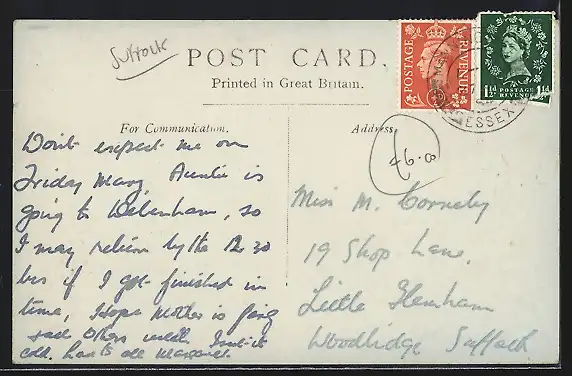 Suffolk
POST CARD.
Printed in Great Britain.
For Communication.
Address.
POSTAGE REVENUE
1½d POSTAGE REVENUE 1½d
ESSEX
£6.00
Don't expect me on
Friday Mary, Auntie is
going to Debenham, so
I may return by the 12.30
bus if I get finished in
time, Hope Mother is going
and others well. Isn't it
cold. Love to all Margaret
Miss M. Corneby
19 Shop Lane,
Little Glemham
Woodbridge Suffolk